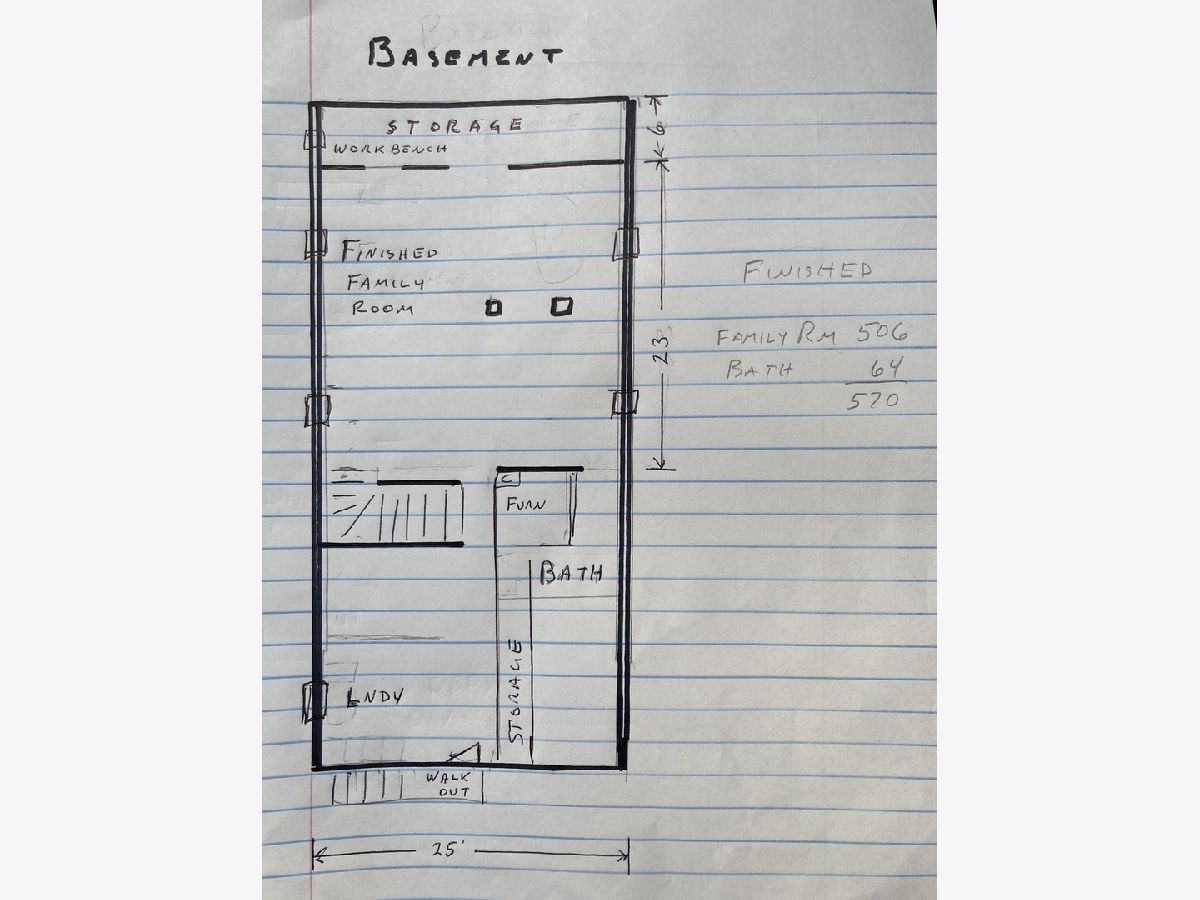 BASEMENT
STORAGE
WORKBENCH
6
FINISHED
FAMILY
ROOM
23
FINISHED
FAMILY RM 506
BATH 64
570
C
FURN
BATH
STORAGE
LNDY
WALK
OUT
25'